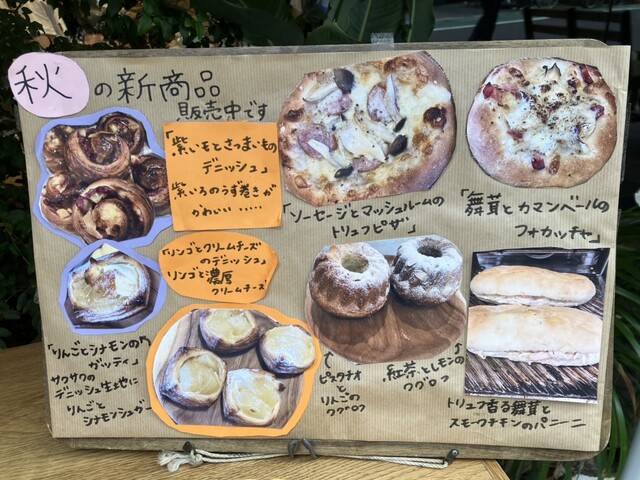 秋の新商品
販売中です
「紫いもとさつまいもの
デニッシュ」
紫いろのうず巻きが
かわいい‥‥‥
「リンゴとクリームチーズ
のデニッシュ」
リンゴと濃厚
クリームチーズ
「りんごとシナモンの
ガッティ」
サクサクの
デニッシュ生地に
りんごと
シナモンシュガー
「ソーセージとマッシュルームの
トリュフピザ」
「舞茸とカマンベールの
フォカッチャ」
ピスタチオ
と
りんごの
クグロフ
紅茶とレモンの
クグロフ
トリュフ香る舞茸と
スモークチキンのパニーニ